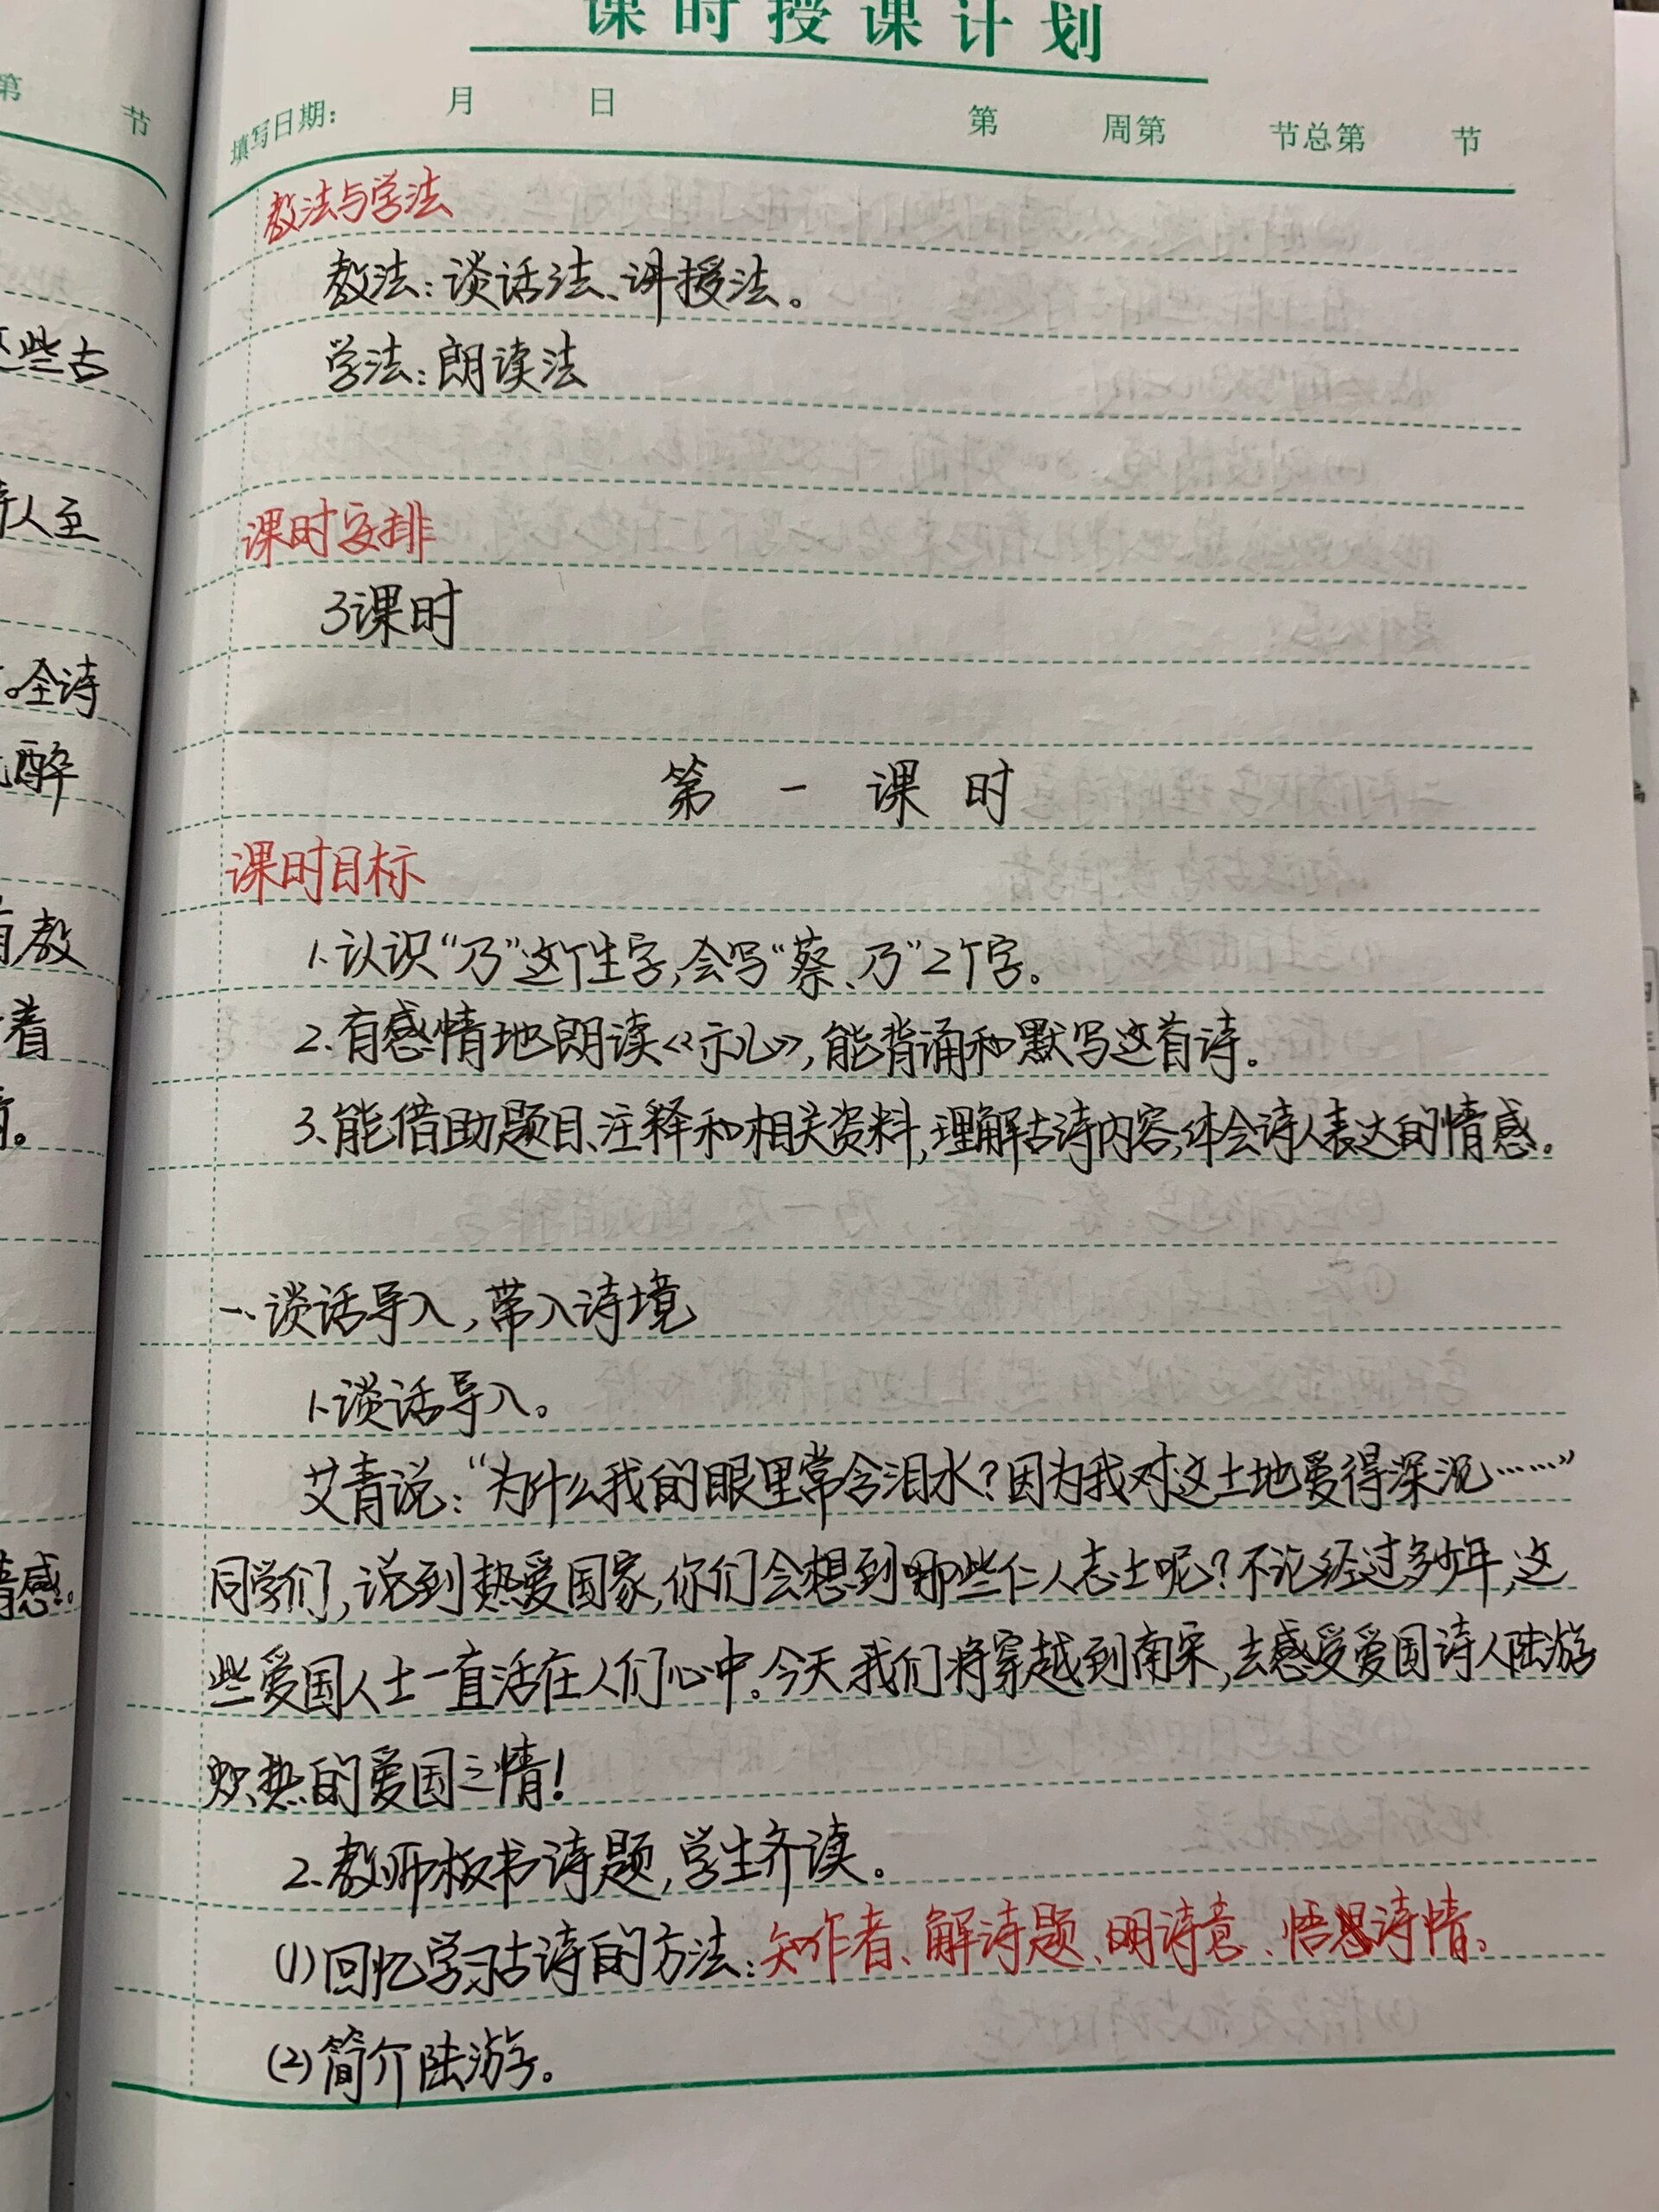 课时授课计划
填写日期: 月 日 第 周第 节总第 节
教法与学法
教法:谈话法、讲授法。
学法:朗读法
课时安排
3课时
第一课时
课时目标
1.认识“乃”这个生字,会写“蔡、乃”2个字。
2.有感情地朗读《示儿》,能背诵和默写这首诗。
3.能借助题目、注释和相关资料,理解古诗内容,体会诗人表达的情感。
一、谈话导入,带入诗境
1.谈话导入。
艾青说:“为什么我的眼里常含泪水?因为我对这土地爱得深沉……”
同学们,说到热爱国家,你们会想到哪些仁人志士呢?不论经过多少年,这
些爱国人士一直活在人们心中。今天我们将穿越到南宋,去感受爱国诗人陆游
炽热的爱国之情!
2.教师板书诗题,学生齐读。
(1)回忆学习古诗的方法:知作者、解诗题、明诗意、悟诗情。
(2)简介陆游。
第 节
些古
诗人至
。全诗
醉
教
着
情感。